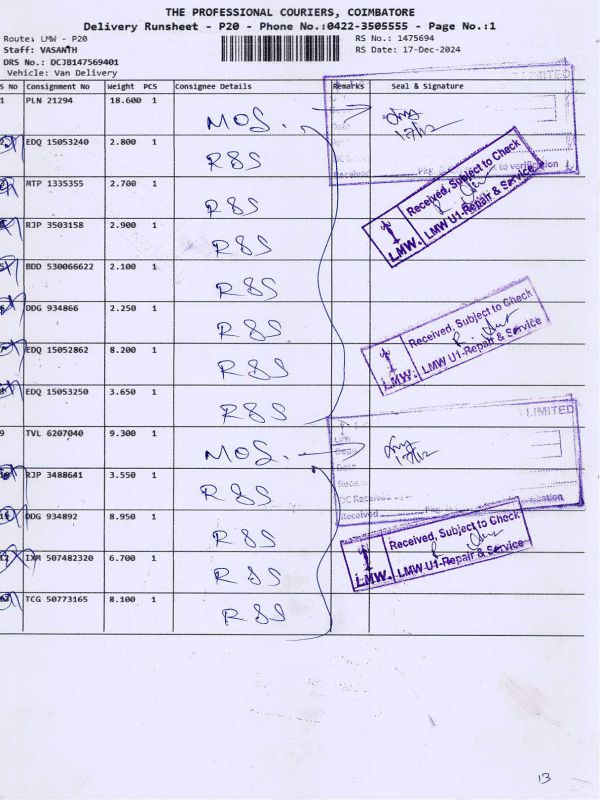 THE PROFESSIONAL COURIERS, COIMBATORE
Delivery Runsheet - P20 - Phone No.:0422-3505555 - Page No.:1
Route: LMW - P20
RS No.: 1475694
Staff: VASANTH
RS Date: 17-Dec-2024
DRS No.: DCJB147569401
Vehicle: Van Delivery
S No Consignment No Weight PCS Consignee Details Remarks Seal & Signature
1 PLN 21294 18.600 1 MOS.
17/12
EDQ 15053240 2.800 1 R&S
MTP 1335355 2.700 1 R&S
RJP 3503158 2.900 1 R&S
BDD 530066622 2.100 1 R&S
DDG 934866 2.250 1 R&S
EDQ 15052862 8.200 1 R&S
EDQ 15053250 3.650 1 R&S
9 TVL 6207040 9.300 1 MOS.
17/12
RJP 3488641 3.550 1 R&S
DDG 934892 8.950 1 R&S
IXM 507482320 6.700 1 R&S
TCG 50773165 8.100 1 R&S
LIMITED
Date
Received
to verification
Received, Subject to Check
LMW U1-Repair & Service
LMW.
Received, Subject to Check
LMW U1-Repair & Service
LMW.
LIMITED
Date
DC Received
Received
Received, Subject to Check
LMW U1-Repair & Service
LMW.
13